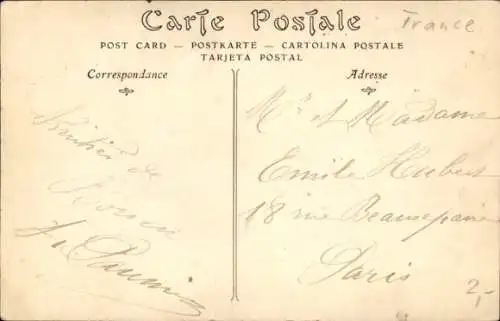 Carte Postale
France
POST CARD — POSTKARTE — CARTOLINA POSTALE
TARJETA POSTAL
Correspondance
Adresse
Mr et Madame
Emile Hubert
18 rue Beaurepaire
Paris
de
2,-